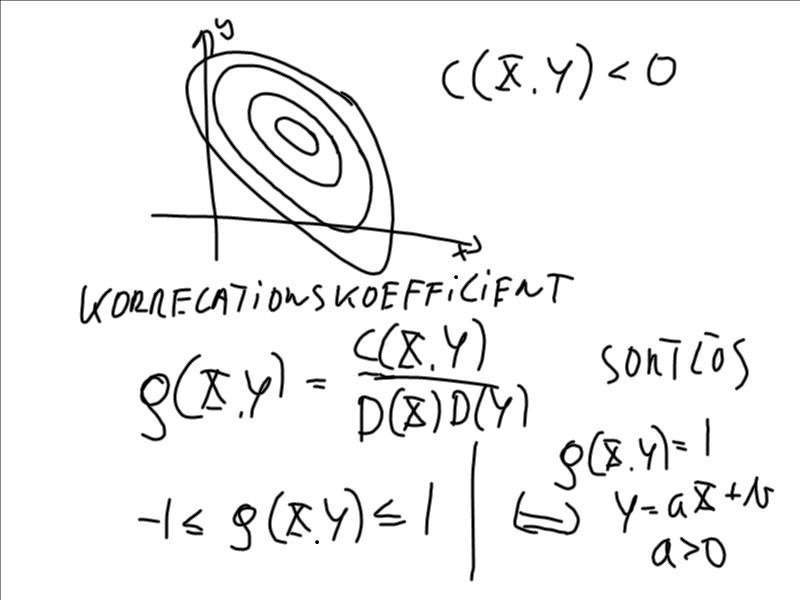 y
C(X,Y) < 0
x
KORRELATIONSKOEFFICIENT
ρ(X,Y) = C(X,Y) / D(X)D(Y)
SORTLÖS
-1 ≤ ρ(X,Y) ≤ 1
ρ(X,Y) = 1
⇔ Y = aX + b
a > 0